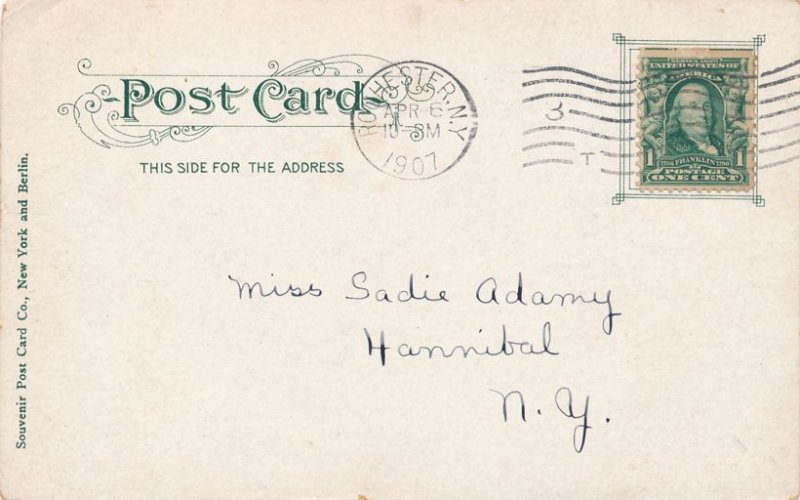 Post Card
THIS SIDE FOR THE ADDRESS
ROCHESTER, N.Y.
APR 6
1907
3
T
SERIES 1902
UNITED STATES OF
AMERICA
1 FRANKLIN 1
POSTAGE
ONE CENT
Miss Sadie Adamy
Hannibal
N. Y.
Souvenir Post Card Co., New York and Berlin.